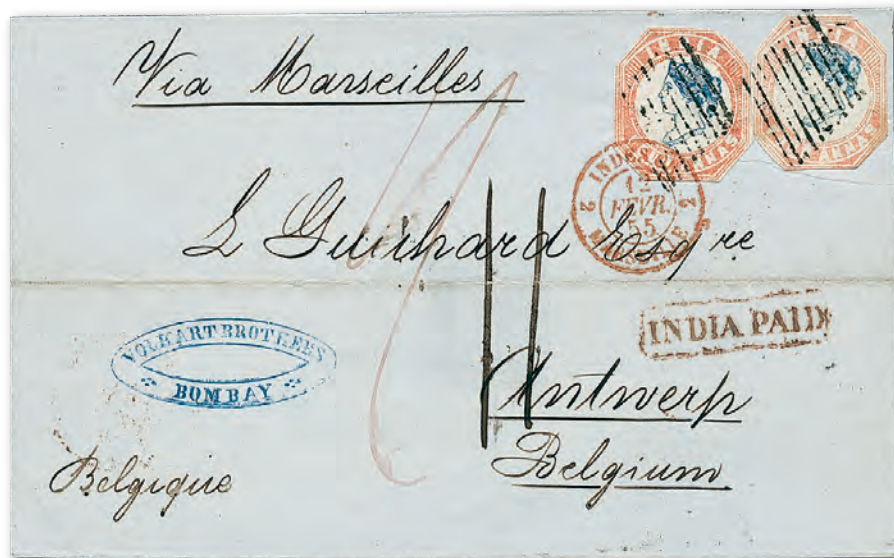 Via Marseilles
INDIA
INDIA
ANNAS
INDES
2 12 2
FEVR.
55
MARSEILLE
L Guichard Esqre
INDIA PAID
VOLKART BROTHERS
BOMBAY
11
Antwerp
Belgium
Belgique